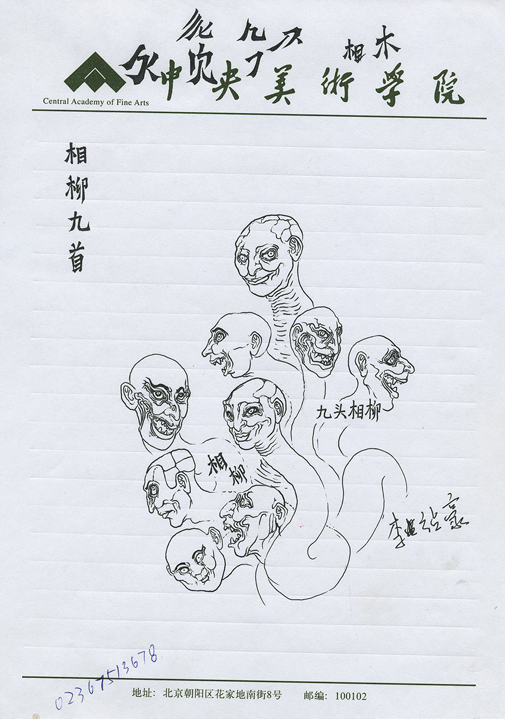 九
相木
中央美術學院
Central Academy of Fine Arts
相柳九首
九头相柳
相柳
02367513678
地址: 北京朝阳区花家地南街8号 邮编: 100102